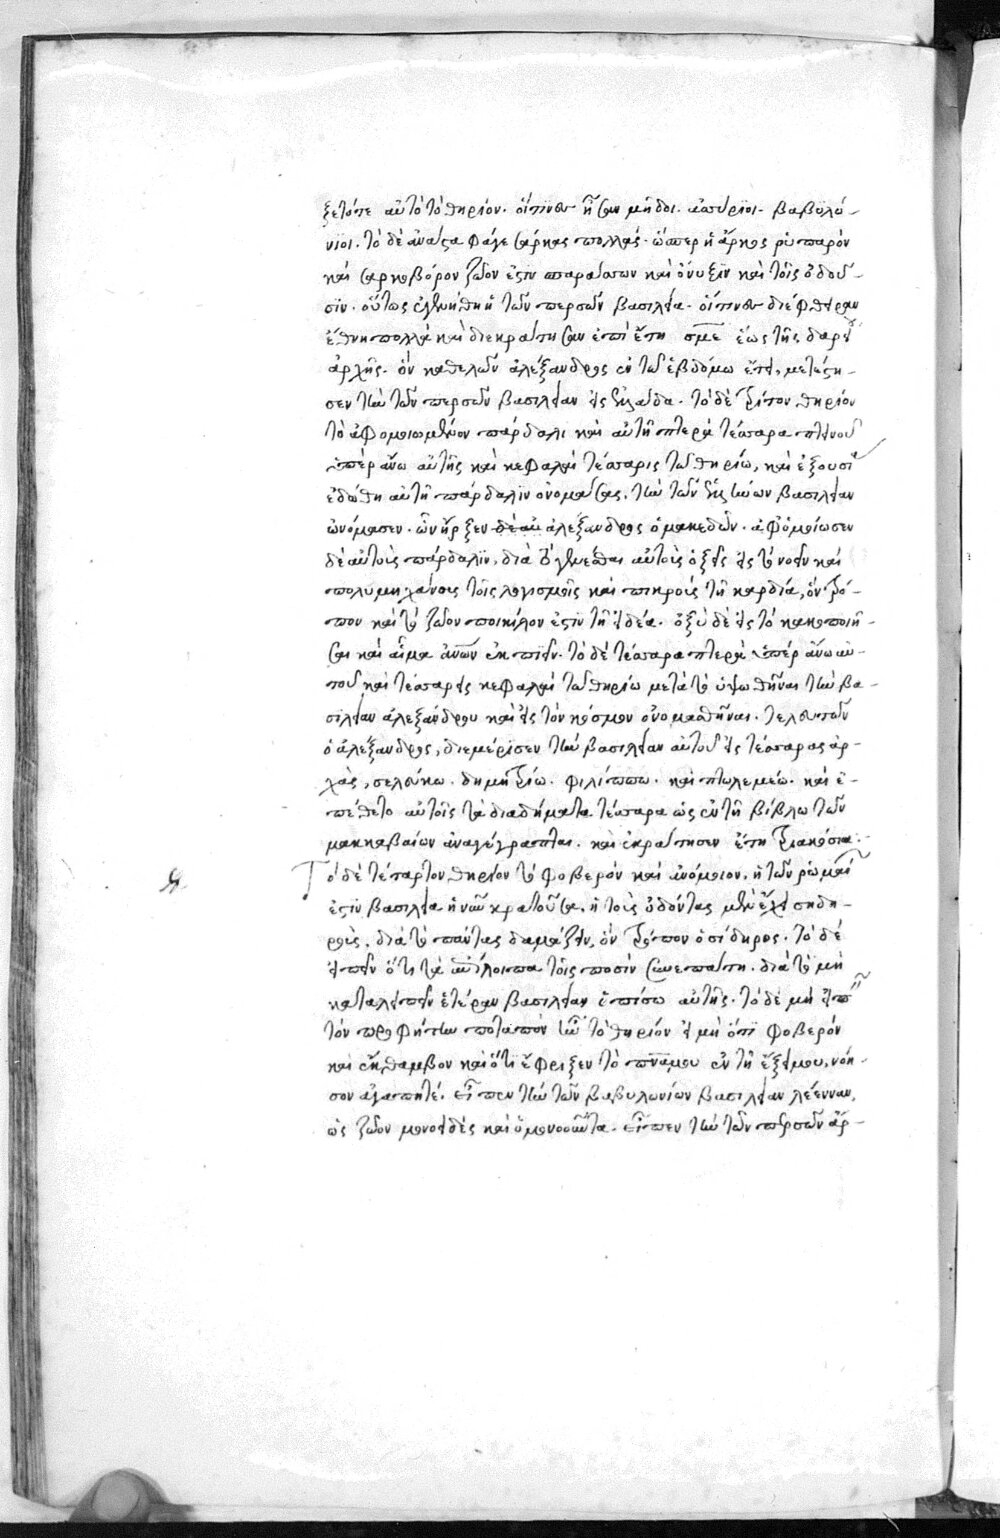 ξετόπε αὐτὸ τὸ θηρίον. οἵτινες ἦσαν μῆδοι. ἀσσύριοι. βαβυλώ-
νιοι. τὸ δὲ ἀνάστα φάγε σάρκας πολλάς. ὥσπερ ἡ ἄρκος ῥυπαρὸν
καὶ σαρκοβόρον ζῶον ἐστιν σπαράσσων καὶ ὄνυξιν καὶ τοῖς ὀδοῦ-
σιν. οὕτως ἐγενήθη ἡ τῶν περσῶν βασιλεία. οἵτινες διέφθειραν
ἔθνη πολλὰ καὶ διεκράτησαν ἐπὶ ἔτη σμε ἕως τῆς δαρείου
ἀρχῆς. ὃν καθελὼν ἀλέξανδρος ἐν τῶ ἑβδόμω ἔτει, μετέστη-
σεν τὴν τῶν περσῶν βασιλείαν εἰς ἑλλάδα. τὸ δὲ τρίτον θηρίον
τὸ ἀφομοιωμένον παρδάλι καὶ αὐτῆ πτερὰ τέσσαρα πετεινοῦ
ὑπὲρ ἄνω αὐτῆς καὶ κεφαλαὶ τέσσαρις τῶ θηρίω, καὶ ἐξουσία
ἐδώθη αὐτῆ πάρδαλιν ὀνομάσας, τὴν τῶν ἑλλήνων βασιλείαν
ὠνόμασεν. ὧν ἦρξεν ἀλέξανδρος ὁ μακεδών. ἀφομοίωσεν
δὲ αὐτοὺς πάρδαλιν, διὰ τὸ γενέσθαι αὐτοὺς ὀξεῖς εἰς τὸ νοεῖν καὶ
πολυμηχάνους τοῖς λογισμοῖς καὶ πικροὺς τῆ καρδία, ὃν τρό-
πον καὶ τὸ ζῶον ποικίλον ἐστιν τῆ εἰδέα. ὀξὺ δὲ εἰς τὸ κακοποιῆ-
σαι καὶ αἷμα ἀνων ἐκπιεῖν. τὸ δὲ τέσσαρα πτερὰ ὑπὲρ ἄνω αὐ-
τοῦ καὶ τέσσαρεις κεφαλαὶ τῶ θηρίω μετὰ τὸ ὑψωθῆναι τὴν βα-
σιλείαν ἀλεξάνδρου καὶ εἰς τὸν κόσμον ὀνομασθῆναι. τελευτῶν
ὁ ἀλέξανδρος, διεμέρισεν τὴν βασιλείαν αὐτοῦ εἰς τέσσαρας ἀρ-
χὰς, σελεύκω. δημητρίω. φιλίππω. καὶ πτολεμέω. καὶ ἐ-
πέθετο αὐτοῖς τὰ διαδήματα τέσσαρα ὡς ἐν τῆ βίβλω τῶν
μακκαβαίων ἀναγέγραπται. καὶ ἐκράτησεν ἔτη τριακόσια.
Τὸ δὲ τέταρτον θηρίον τὸ φοβερὸν καὶ ἀνόμοιον, ἡ τῶν ῥωμαίων
ἐστιν βασιλεία ἡ νῦν κρατοῦσα, ἡ τοὺς ὀδόντας μὲν ἔχει σιδη-
ροὺς, διὰ τὸ πάντας δαμάζειν, ὃν τρόπον ὁ σίδηρος. τὸ δὲ
εἰπεῖν ὅτι τὰ ἐπίλοιπα τοῖς ποσὶν συνεπάτη. διὰ τὸ μὴ
καταλείπειν ἑτέραν βασιλείαν ὀπίσω αὐτῆς. τὸ δὲ μὴ εἰπεῖν
τὸν προφήτην ποταπὸν ἦν τὸ θηρίον εἰ μὴ ὅτι φοβερὸν
καὶ ἔκθαμβον καὶ ὅτι ἔφριξεν τὸ πνα μου ἐν τῆ ἕξει μου, νόη-
σον ἀγαπητέ. εἶπεν τὴν τῶν βαβυλωνίων βασιλείαν λέενναν,
ὡς ζῶον μονοειδὲς καὶ ὁμονοοῦντα. εἶπεν τὴν τῶν περσῶν ἄρ-